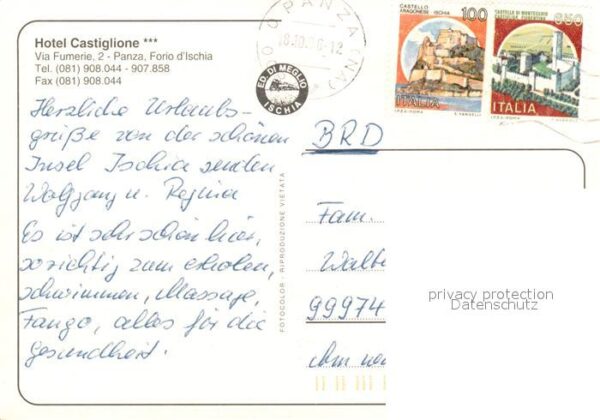 Hotel Castiglione ***
Via Fumerie, 2 - Panza, Forio d'Ischia
Tel. (081) 908.044 - 907.858
Fax (081) 908.044
Herzliche Urlaubs-
grüße von der schönen
Insel Ischia senden
Wolfgang u. Regina
Es ist sehr schön hier,
so richtig zum erholen,
schwimmen, Massage,
Fango, alles für die
Gesundheit.
ED. DI MEGLIO
ISCHIA
FOTOCOLOR - RIPRODUZIONE VIETATA
PANZA (NA)
CASTELLO
ARAGONESE - ISCHIA
100
ITALIA
CASTELLO DI MONTECCHIO
CASTIGLION FIORENTINO
650
ITALIA
BRD
Fam.
Walte
99974
privacy protection
Datenschutz